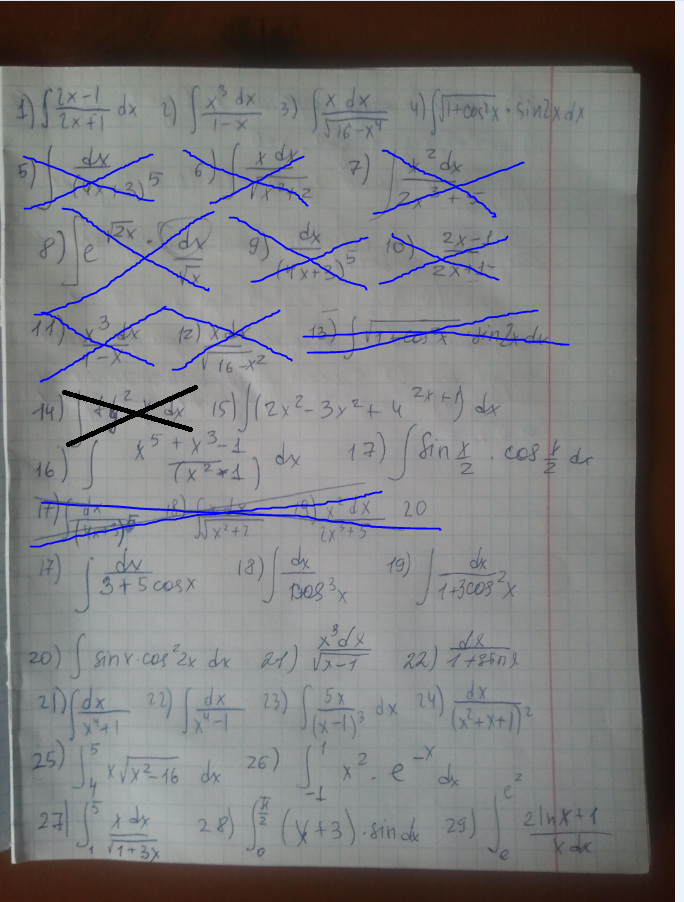 1) ∫ (2x-1)/(2x+1) dx 2) ∫ x³ dx/(1-x) 3) ∫ x dx/√(16-x⁴) 4) ∫ √(1+cos²x) · sin2x dx
5) ∫ dx/(4x+3)⁵ 6) ∫ x dx/√(x²+2) 7) ∫ x² dx/(2x³+5)
8) ∫ e^√(2x) · dx/√x 9) dx/(4x+3)⁵ 10) (2x-1)/(2x+1)
11) x³ dx/(1-x) 12) x dx/√(16-x²) 13) ∫ √(1+cos x) · sin2x dx
14) ∫ tg² x dx 15) ∫ (2x² - 3x² + 4^(2x+1)) dx
16) ∫ (x⁵ + x³ - 1)/(x² + 1) dx 17) ∫ sin x/2 · cos x/2 dx
17) ∫ dx/(4x+3)⁵ 18) x dx/√(x²+2) 19) x² dx/(2x³+5) 20
17) ∫ dx/(3+5cosx) 18) ∫ dx/cos³x 19) ∫ dx/(1+3cos²x)
20) ∫ sinx·cos²2x dx 21) x³dx/√(x-1) 22) dx/(1+sinx)
21) ∫ dx/(x⁴+1) 22) ∫ dx/(x⁴-1) 23) ∫ 5x/(x-1)³ dx 24) dx/(x²+x+1)²
25) ∫₄⁵ x√(x²-16) dx 26) ∫₋₁¹ x² · e^(-x) dx
27) ∫₁⁵ x dx/√(1+3x) 28) ∫₀^(π/2) (x+3)·sin dx 29) ∫ₑ^(e²) (2lnx+1)/(x dx)